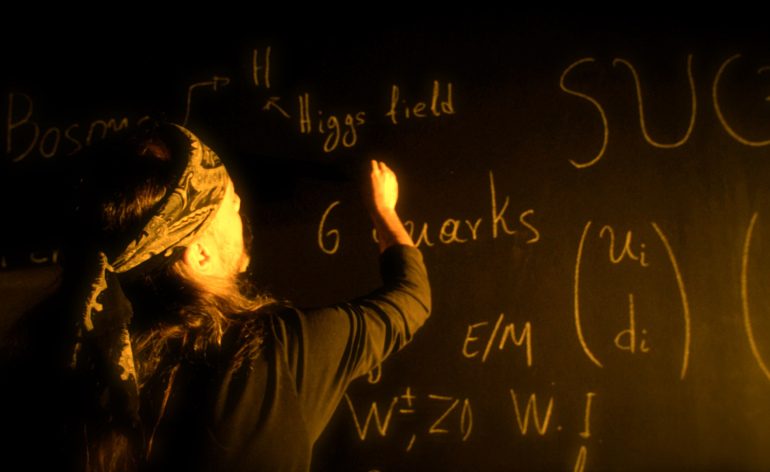 H
Bosons Higgs field SU(
6 quarks
u_i
d_i
E/M
W±, Z0 W.I